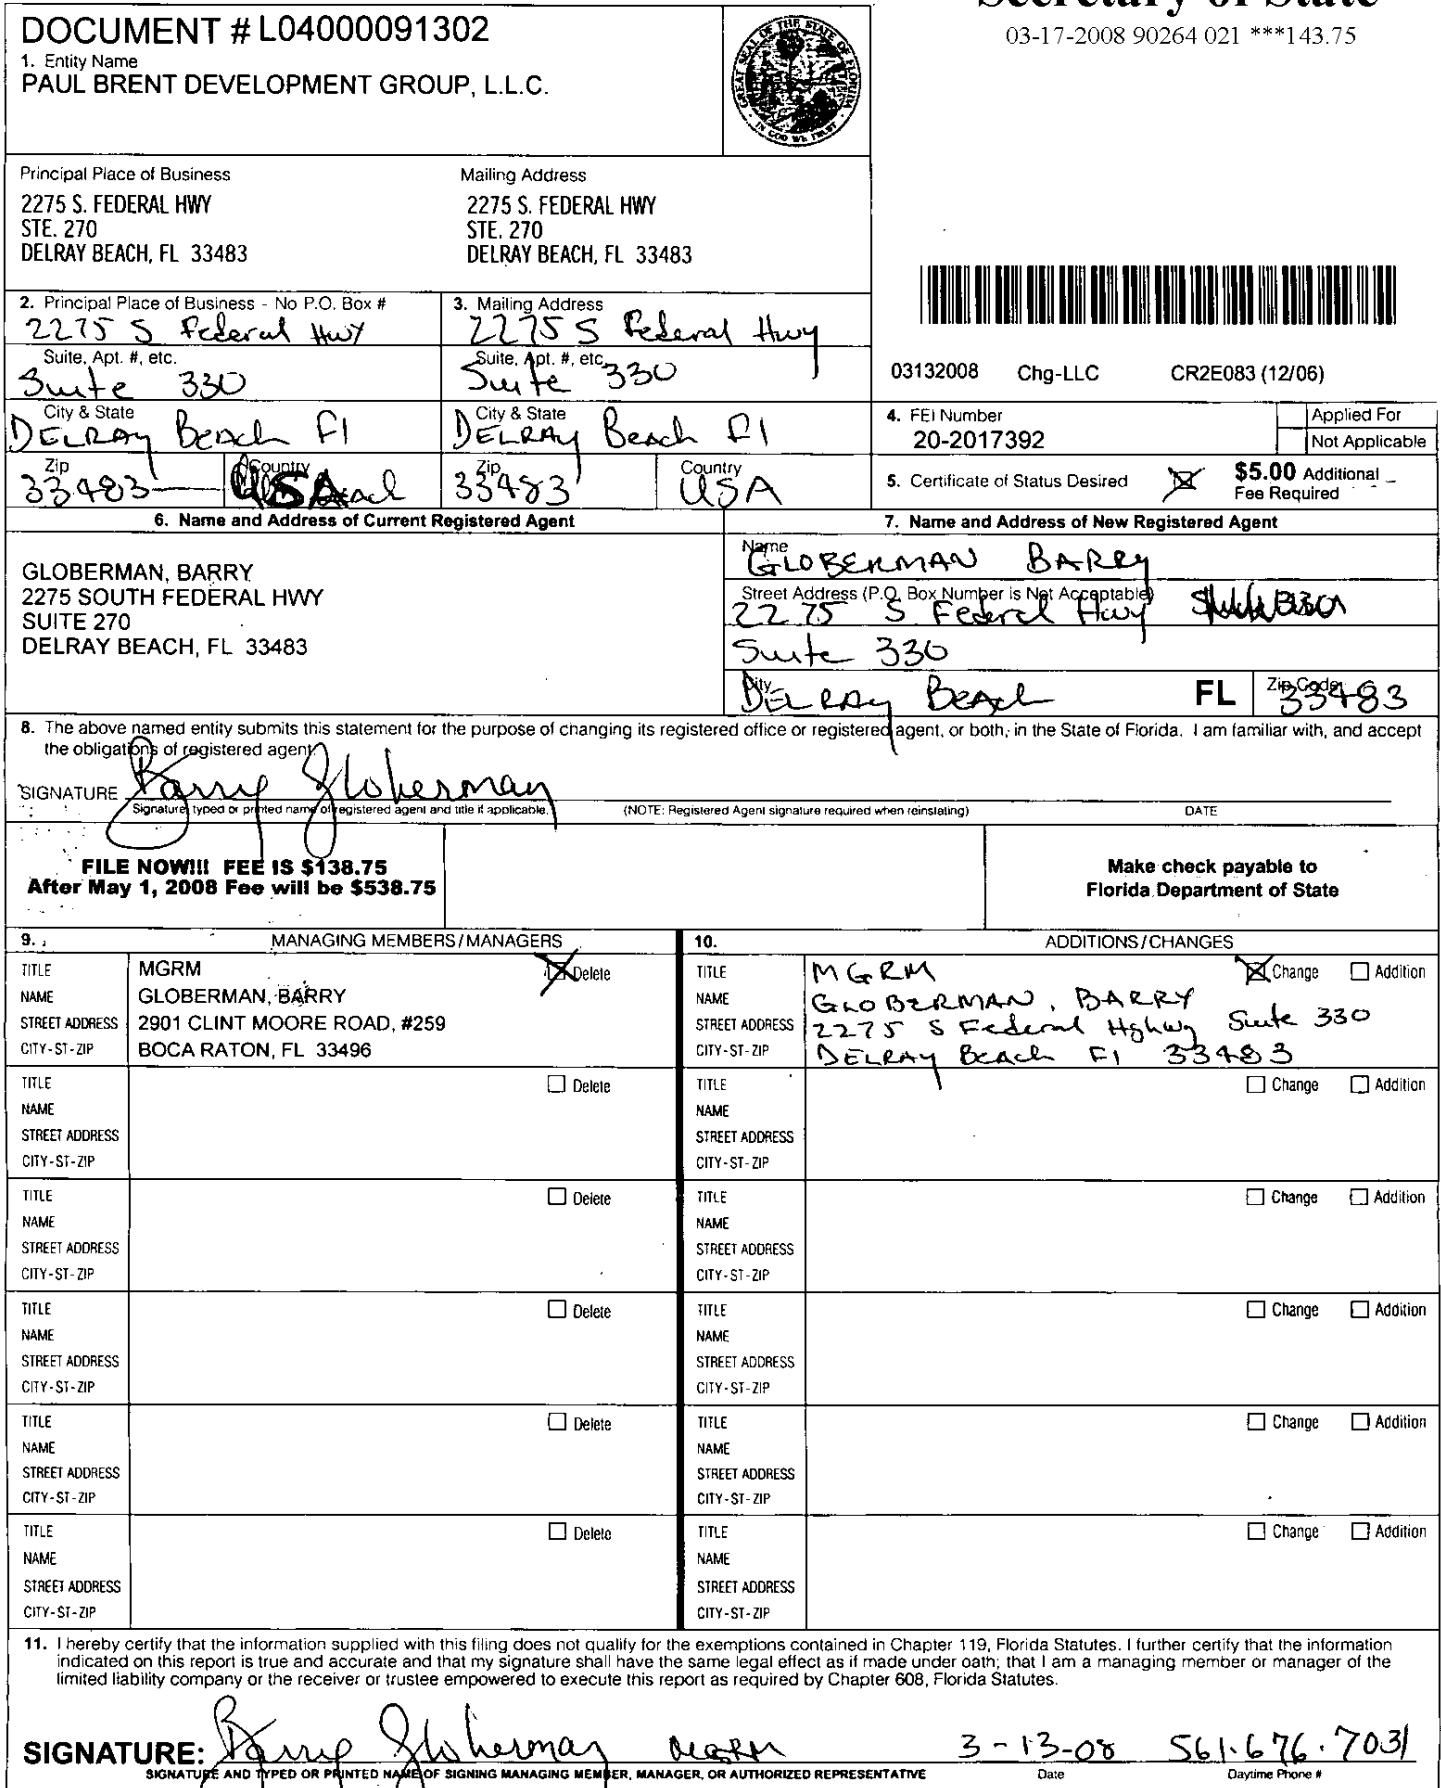 DOCUMENT # L04000091302
1. Entity Name
PAUL BRENT DEVELOPMENT GROUP, L.L.C.
GREAT SEAL OF THE STATE OF FLORIDA
IN GOD WE TRUST
Secretary of State
03-17-2008 90264 021 ***143.75
Principal Place of Business
2275 S. FEDERAL HWY
STE. 270
DELRAY BEACH, FL 33483
Mailing Address
2275 S. FEDERAL HWY
STE. 270
DELRAY BEACH, FL 33483
2. Principal Place of Business - No P.O. Box #
2275 S Federal Hwy
Suite, Apt. #, etc.
Suite 330
City & State
DELRAY Beach Fl
Zip
33483
Country
USA
3. Mailing Address
2275 S Federal Hwy
Suite, Apt. #, etc.
Suite 330
City & State
DELRAY Beach Fl
Zip
33483
Country
USA
03132008 Chg-LLC CR2E083 (12/06)
4. FEI Number
20-2017392
Applied For
Not Applicable
5. Certificate of Status Desired
$5.00 Additional
Fee Required
6. Name and Address of Current Registered Agent
GLOBERMAN, BARRY
2275 SOUTH FEDERAL HWY
SUITE 270
DELRAY BEACH, FL 33483
7. Name and Address of New Registered Agent
Name
GLOBERMAN BARRY
Street Address (P.O. Box Number is Not Acceptable)
2275 S Federal Hwy
Suite 330
City
DELRAY Beach
FL
Zip Code
33483
8. The above named entity submits this statement for the purpose of changing its registered office or registered agent, or both, in the State of Florida. I am familiar with, and accept
the obligations of registered agent.
SIGNATURE Barry Globerman
Signature, typed or printed name of registered agent and title if applicable.
(NOTE: Registered Agent signature required when reinstating)
DATE
FILE NOW!!! FEE IS $138.75
After May 1, 2008 Fee will be $538.75
Make check payable to
Florida Department of State
9. MANAGING MEMBERS/MANAGERS
TITLE MGRM Delete
NAME GLOBERMAN, BARRY
STREET ADDRESS 2901 CLINT MOORE ROAD, #259
CITY-ST-ZIP BOCA RATON, FL 33496
10. ADDITIONS/CHANGES
TITLE MGRM Change Addition
NAME GLOBERMAN, BARRY
STREET ADDRESS 2275 S Federal Hghwy Suite 330
CITY-ST-ZIP DELRAY Beach Fl 33483
TITLE Delete
NAME
STREET ADDRESS
CITY-ST-ZIP
TITLE Change Addition
NAME
STREET ADDRESS
CITY-ST-ZIP
TITLE Delete
NAME
STREET ADDRESS
CITY-ST-ZIP
TITLE Change Addition
NAME
STREET ADDRESS
CITY-ST-ZIP
TITLE Delete
NAME
STREET ADDRESS
CITY-ST-ZIP
TITLE Change Addition
NAME
STREET ADDRESS
CITY-ST-ZIP
TITLE Delete
NAME
STREET ADDRESS
CITY-ST-ZIP
TITLE Change Addition
NAME
STREET ADDRESS
CITY-ST-ZIP
TITLE Delete
NAME
STREET ADDRESS
CITY-ST-ZIP
TITLE Change Addition
NAME
STREET ADDRESS
CITY-ST-ZIP
11. I hereby certify that the information supplied with this filing does not qualify for the exemptions contained in Chapter 119, Florida Statutes. I further certify that the information
indicated on this report is true and accurate and that my signature shall have the same legal effect as if made under oath; that I am a managing member or manager of the
limited liability company or the receiver or trustee empowered to execute this report as required by Chapter 608, Florida Statutes.
SIGNATURE: Barry Globerman MGRM 3-13-08 561.676.7031
SIGNATURE AND TYPED OR PRINTED NAME OF SIGNING MANAGING MEMBER, MANAGER, OR AUTHORIZED REPRESENTATIVE Date Daytime Phone #